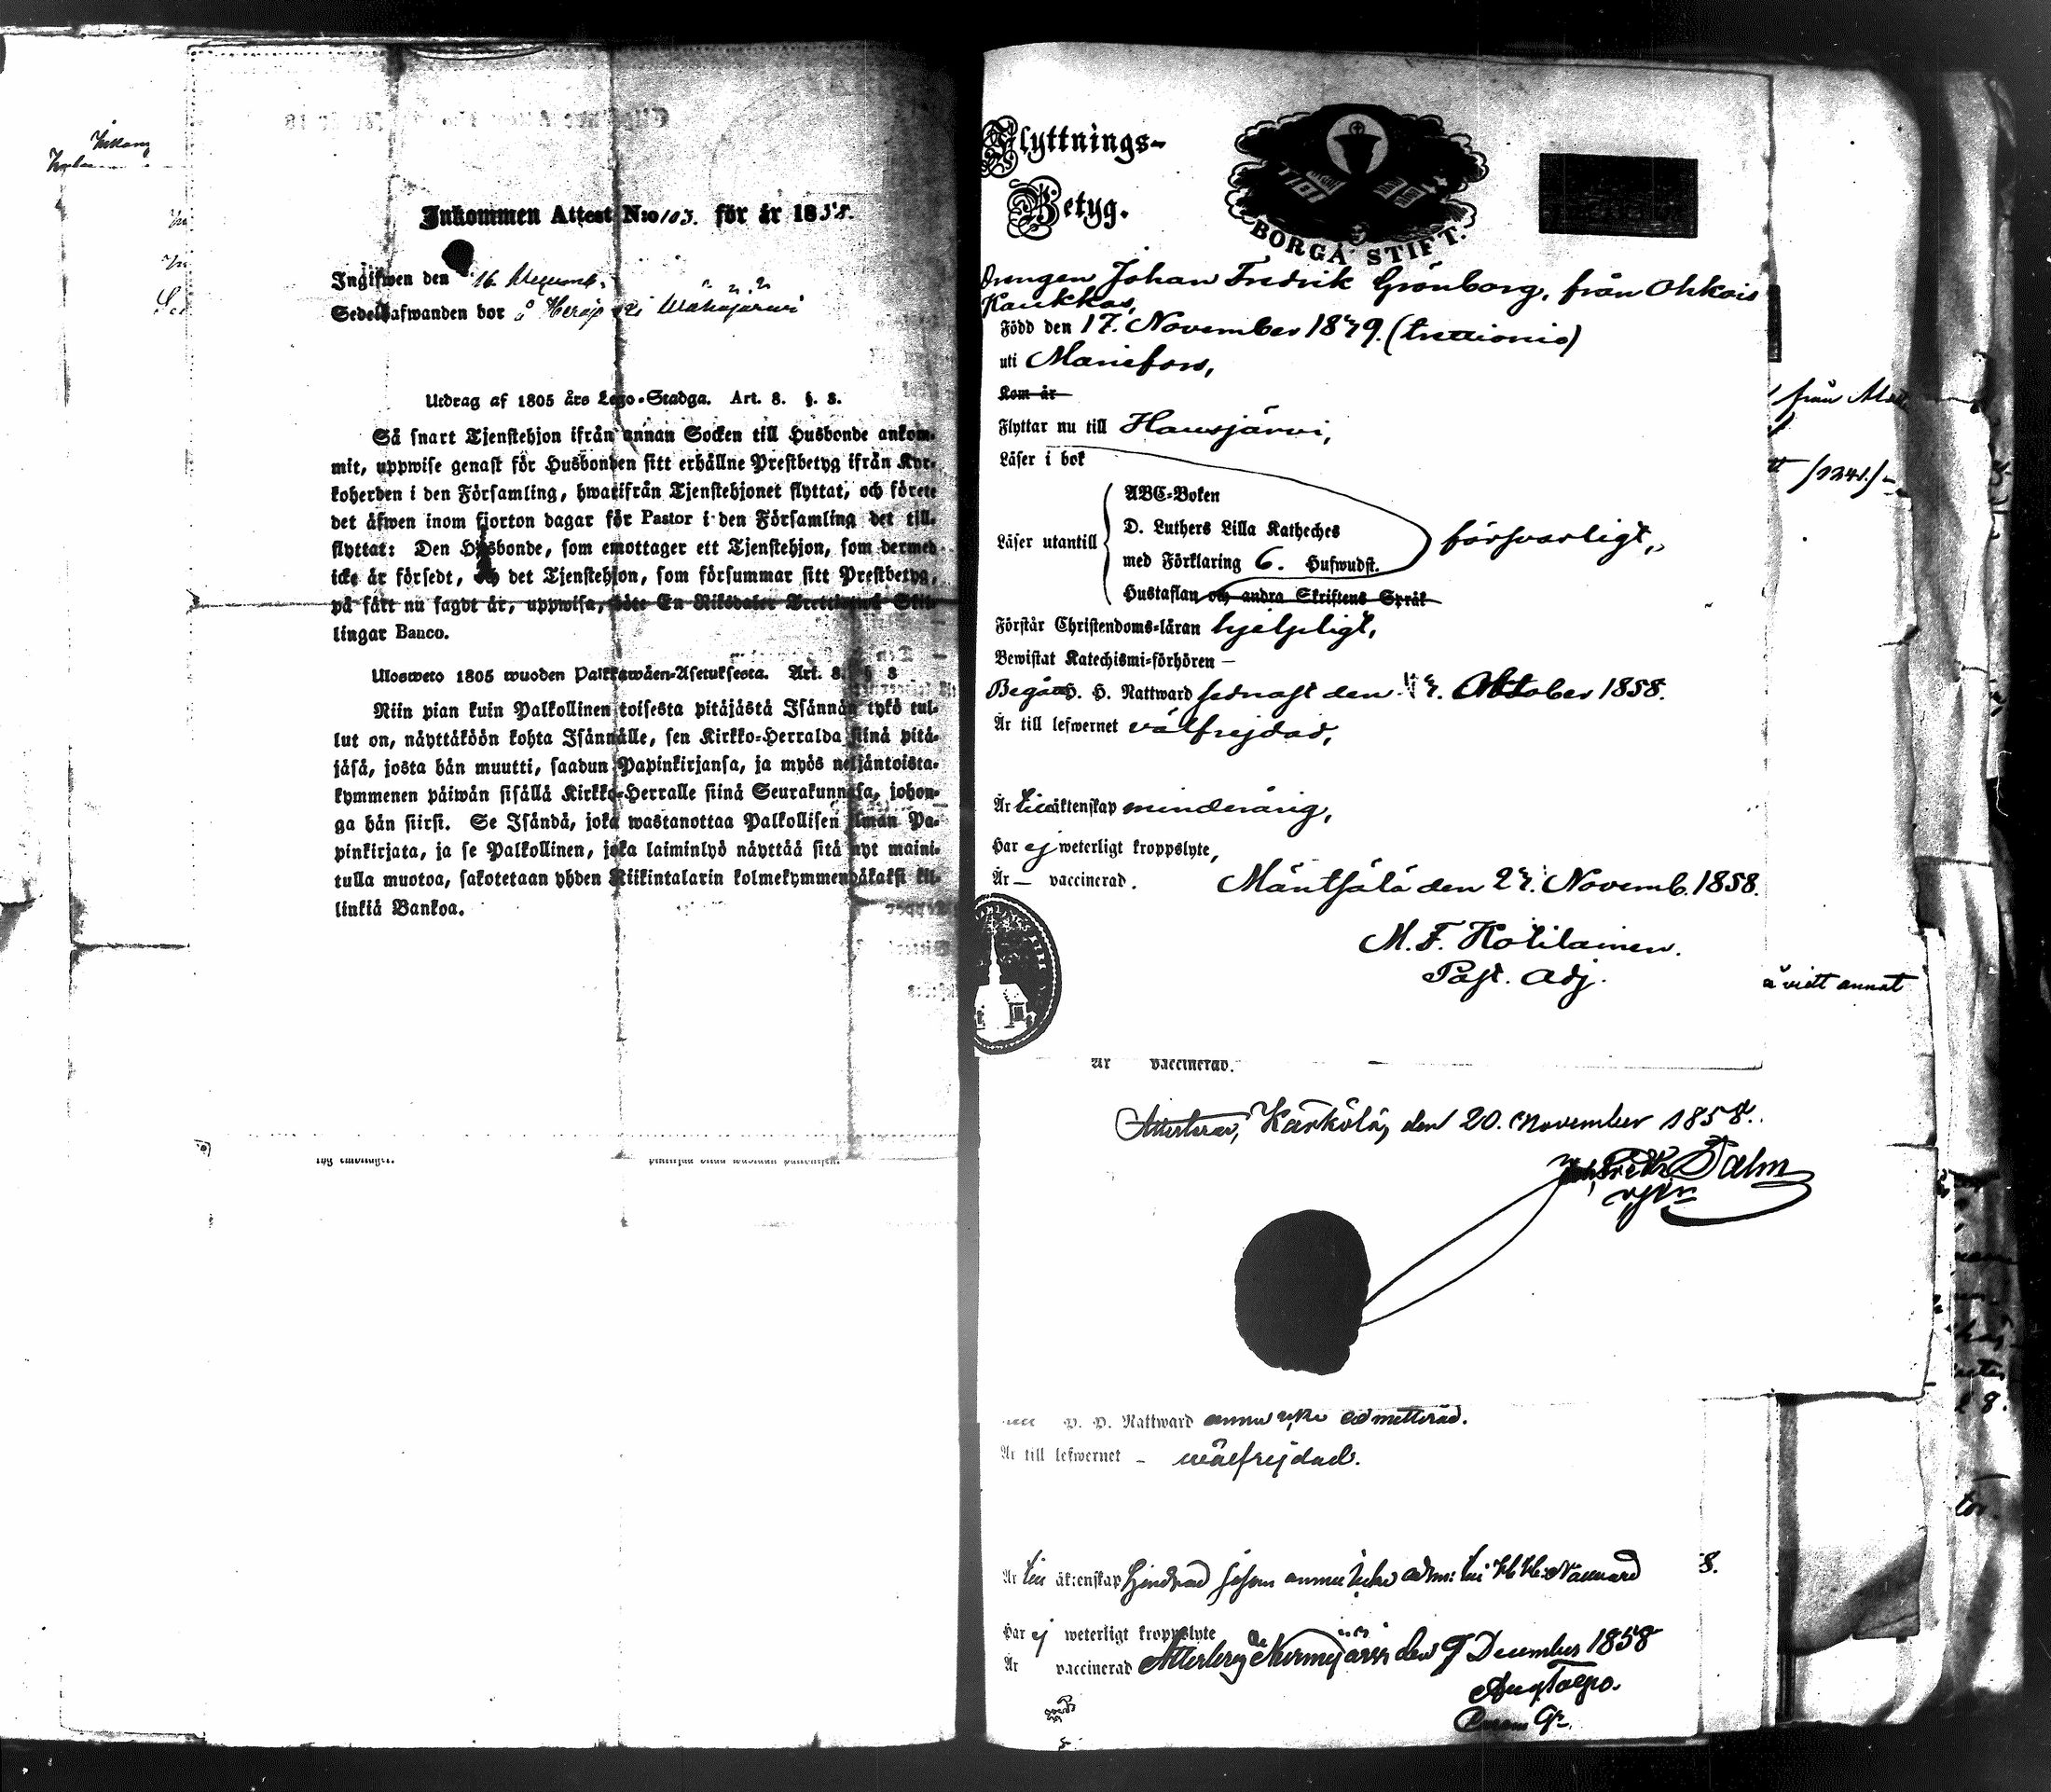 Inkommen Attest N:o 103. för år 1858.
Ingifwen den 16 Decemb.
Sedelhafwanden bor å
Utdrag af 1805 års Lego-Stadga. Art. 8. §. 8.
Så snart Tjenstehjon ifrån annan Socken till Husbonde ankom-
mit, uppwise genast för Husbonden sitt erhållne Prestbetyg ifrån Kyr-
koherden i den Församling, hwarifrån Tjenstehjonet flyttat, och förete
det äfwen inom fjorton dagar för Pastor i den Församling det till-
flyttat: Den Husbonde, som emottager ett Tjenstehjon, som dermed
icke är försedt, och det Tjenstehjon, som försummar sitt Prestbetyg,
på sätt nu sagdt är, uppwisa, böte En Riksdaler Trettiotwå Skil-
lingar Banco.
Ulosweto 1805 wuoden Palkkawäen-Asetuksesta. Art. 8. § 8
Niin pian kuin Palkollinen toisesta pitäjästä Isännän tykö tul-
lut on, näyttäköön kohta Isännälle, sen Kirkko-Herralda siinä pitä-
jäsä, josta hän muutti, saadun Papinkirjansa, ja myös neljäntoista-
kymmenen päiwän sisällä Kirkko-Herralle siinä Seurakunnasa, johon-
ga hän siirsi. Se Isändä, joka wastanottaa Palkollisen ilman Pa-
pinkirjata, ja se Palkollinen, joka laiminlyö näyttää sitä nyt maini-
tulla muotoa, sakotetaan yhden Riikintalarin kolmekymmendäkaksi kil-
linkiä Bankoa.
Flyttnings-
Betyg.
BORGÅ STIFT.
Drengen Johan Fredrik Grönborg, från Ohkois
Kaukkas,
Född den 17. November 1839. (trettionio)
uti Mariefors,
Kom år
Flyttar nu till Hausjärvi,
Läser i bok
Läser utantill
ABC-Boken
D. Luthers Lilla Katheches
med Förklaring 6. Hufwudst.
Hustaflan och andra Skriftens Språk
försvarligt,
Förstår Christendoms-läran hjelpligt,
Bewistat Katechismi-förhören —
Begått H. H. Nattward sednast den Oktober 1858.
Är till lefwernet välfrejdad,
Är till äktenskap minderårig,
Har ej weterligt kroppslyte,
Är — vaccinerad.
Mäntsälä den 27. Novemb. 1858.
M. F. Kotilainen.
Past. Adj.
från
å vidt annat
Är vaccinerad.
Attesterar, Kärkölä, den 20. November 1858.
Palm
H. H. Nattward ännu icke admitterad.
Är till lefwernet – wälfrejdad.
Är till äktenskap hindrad såsom ännu icke adm: till H. H. Nattward
Har ej weterligt kroppslyte
Är vaccinerad
Nurmijärvi den 9 December 1858